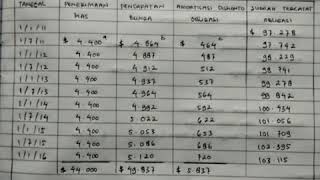 TANGGAL PENERIMAAN KAS PENDAPATAN BUNGA AMORTISASI DISKONTO OBLIGASI JUMLAH TERCATAT OBLIGASI
1/1/11 $ 97.278
1/7/11 $ 4.400 a $ 4.864 b $ 464 c 97.742
1/1/12 4.400 4.887 487 98.229
1/7/12 4.400 4.912 512 98.741
1/1/13 4.400 4.937 537 99.278
1/7/13 4.400 4.964 564 99.842
1/1/14 4.400 4.992 592 100.434
1/7/14 4.400 5.022 622 101.056
1/1/15 4.400 5.053 653 101.709
1/7/15 4.400 5.086 686 102.395
1/1/16 4.400 5.120 720 103.115
$ 44.000 $ 49.837 $ 5.837